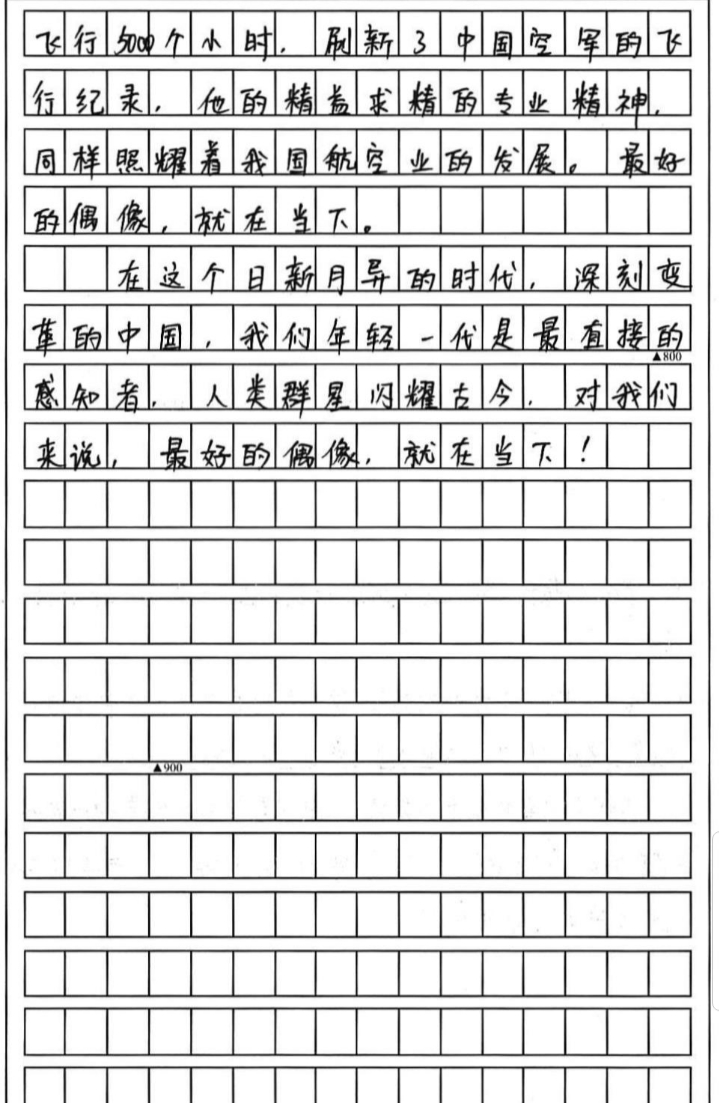 飞行5000个小时，刷新了中国空军的飞
行纪录，他的精益求精的专业精神，
同样照耀着我国航空业的发展。最好
的偶像，就在当下。
在这个日新月异的时代，深刻变
革的中国，我们年轻一代是最直接的
▲800
感知者，人类群星闪耀古今，对我们
来说，最好的偶像，就在当下！
▲900